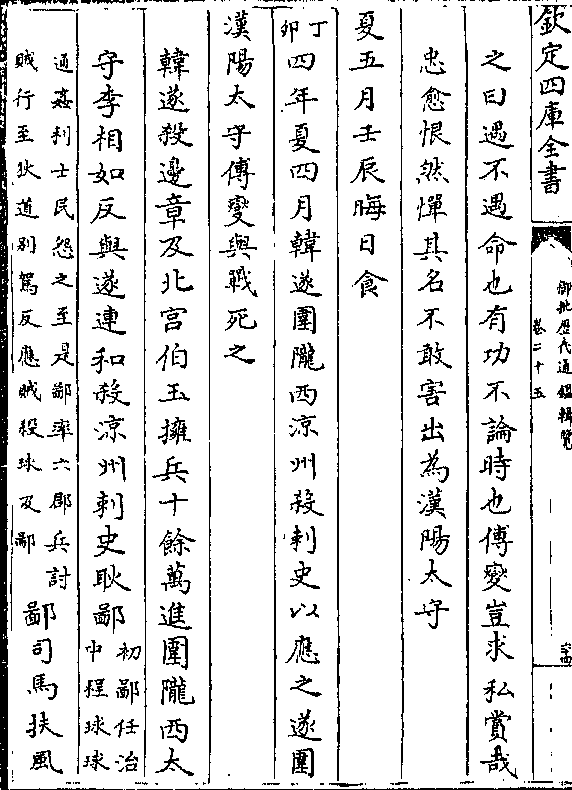 欽定四庫全書
御批歴代通鑑輯覽
卷二十五
之曰遇不遇命也有功不論時也傅燮豈求私賞哉
忠愈恨然憚其名不敢害出為漢陽太守
夏五月壬辰晦日食
丁卯四年夏四月韓遂圍隴西涼州殺刺史以應之遂圍
漢陽太守傅燮與戰死之
韓遂殺邊章及北宫伯玉擁兵十餘萬進圍隴西太
守李相如反與遂連和殺涼州刺史耿鄙初鄙任治
中程球球
通姦利士民怨之至是鄙率六郡兵討
賊行至狄道别駕反應賊殺球及鄙
鄙司馬扶風